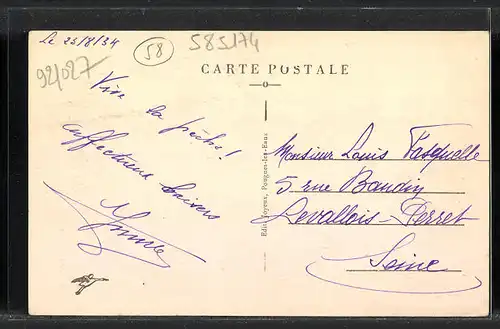 Le 25/8/34
58
585174
92/027
CARTE POSTALE
Vive la pêche!
affectueux baisers
Monsieur Louis Fasquelle
5 rue Baudin
Levallois-Perret
Seine
Edit. Joyeux, Pougues-les-Eaux